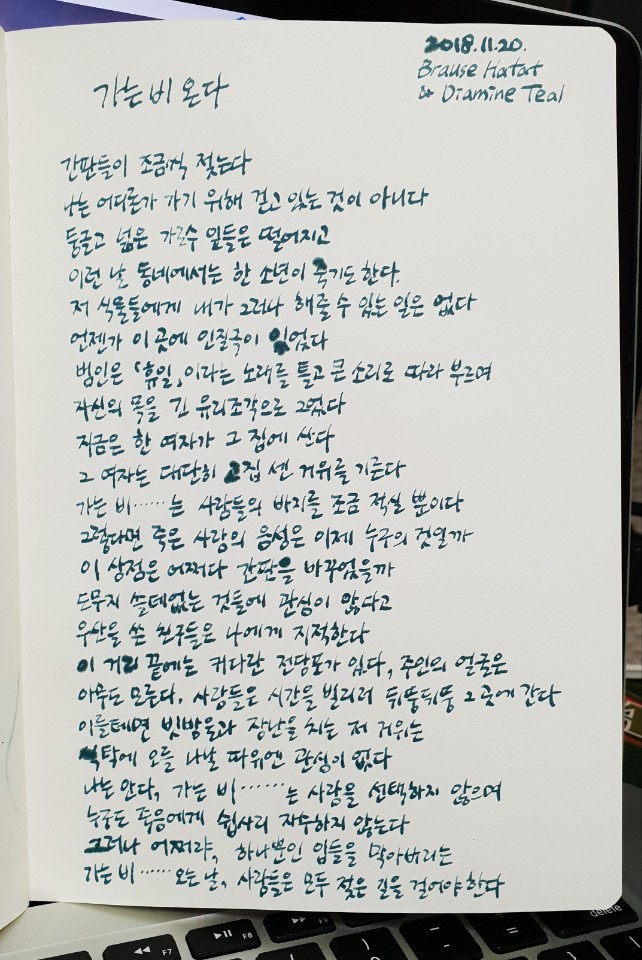 2018.11.20.
Brause Hatat
& Diamine Teal
가는 비 온다
간판들이 조금씩 젖는다
나는 어디론가 가기 위해 걷고 있는 것이 아니다
둥글고 넓은 가로수 잎들은 떨어지고
이런 날 동네에서는 한 소년이 죽기도 한다.
저 식물들에게 내가 그러나 해줄 수 있는 일은 없다
언젠가 이 곳에 인질극이 있었다
범인은 「휴일」이라는 노래를 틀고 큰 소리로 따라 부르며
자신의 목을 긴 유리조각으로 그었다
지금은 한 여자가 그 집에 산다
그 여자는 대단히 고집 센 거위를 기른다
가는 비……는 사람들의 바지를 조금 적실 뿐이다
그렇다면 죽은 사람의 음성은 이제 누구의 것일까
이 상점은 어쩌다 간판을 바꾸었을까
도무지 쓸데없는 것들에 관심이 많다고
우산을 쓴 친구들은 나에게 지적한다
이 거리 끝에는 커다란 전당포가 있다, 주인의 얼굴은
아무도 모른다. 사람들은 시간을 빌리러 뒤뚱뒤뚱 그 곳에 간다
이를테면 빗방울과 장난을 치는 저 거위는
식탁에 오를 나날 따위엔 관심이 없다
나는 안다, 가는 비……는 사람을 선택하지 않으며
누구도 죽음에게 쉽사리 자수하지 않는다
그러나 어쩌랴, 하나뿐인 입들을 막아버리는
가는 비……오는 날, 사람들은 모두 젖은 길을 걸어야 한다
F7
F8
F9
delete